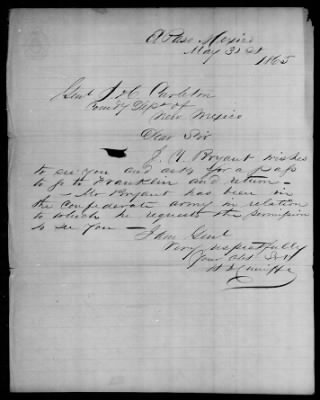 El Paso Mexico
May 31st
1865
Genl J. H. Carleton
Comdg Dept of
New Mexico
Dear Sir
J. Y. Bryant wishes
to see you and asks for a pass
to go to Franklin and return —
— Mr Bryant has been in
the confederate army in relation
to which he requests the permission
to see you — I am Genl
Very respectfully
Your Obt Svt